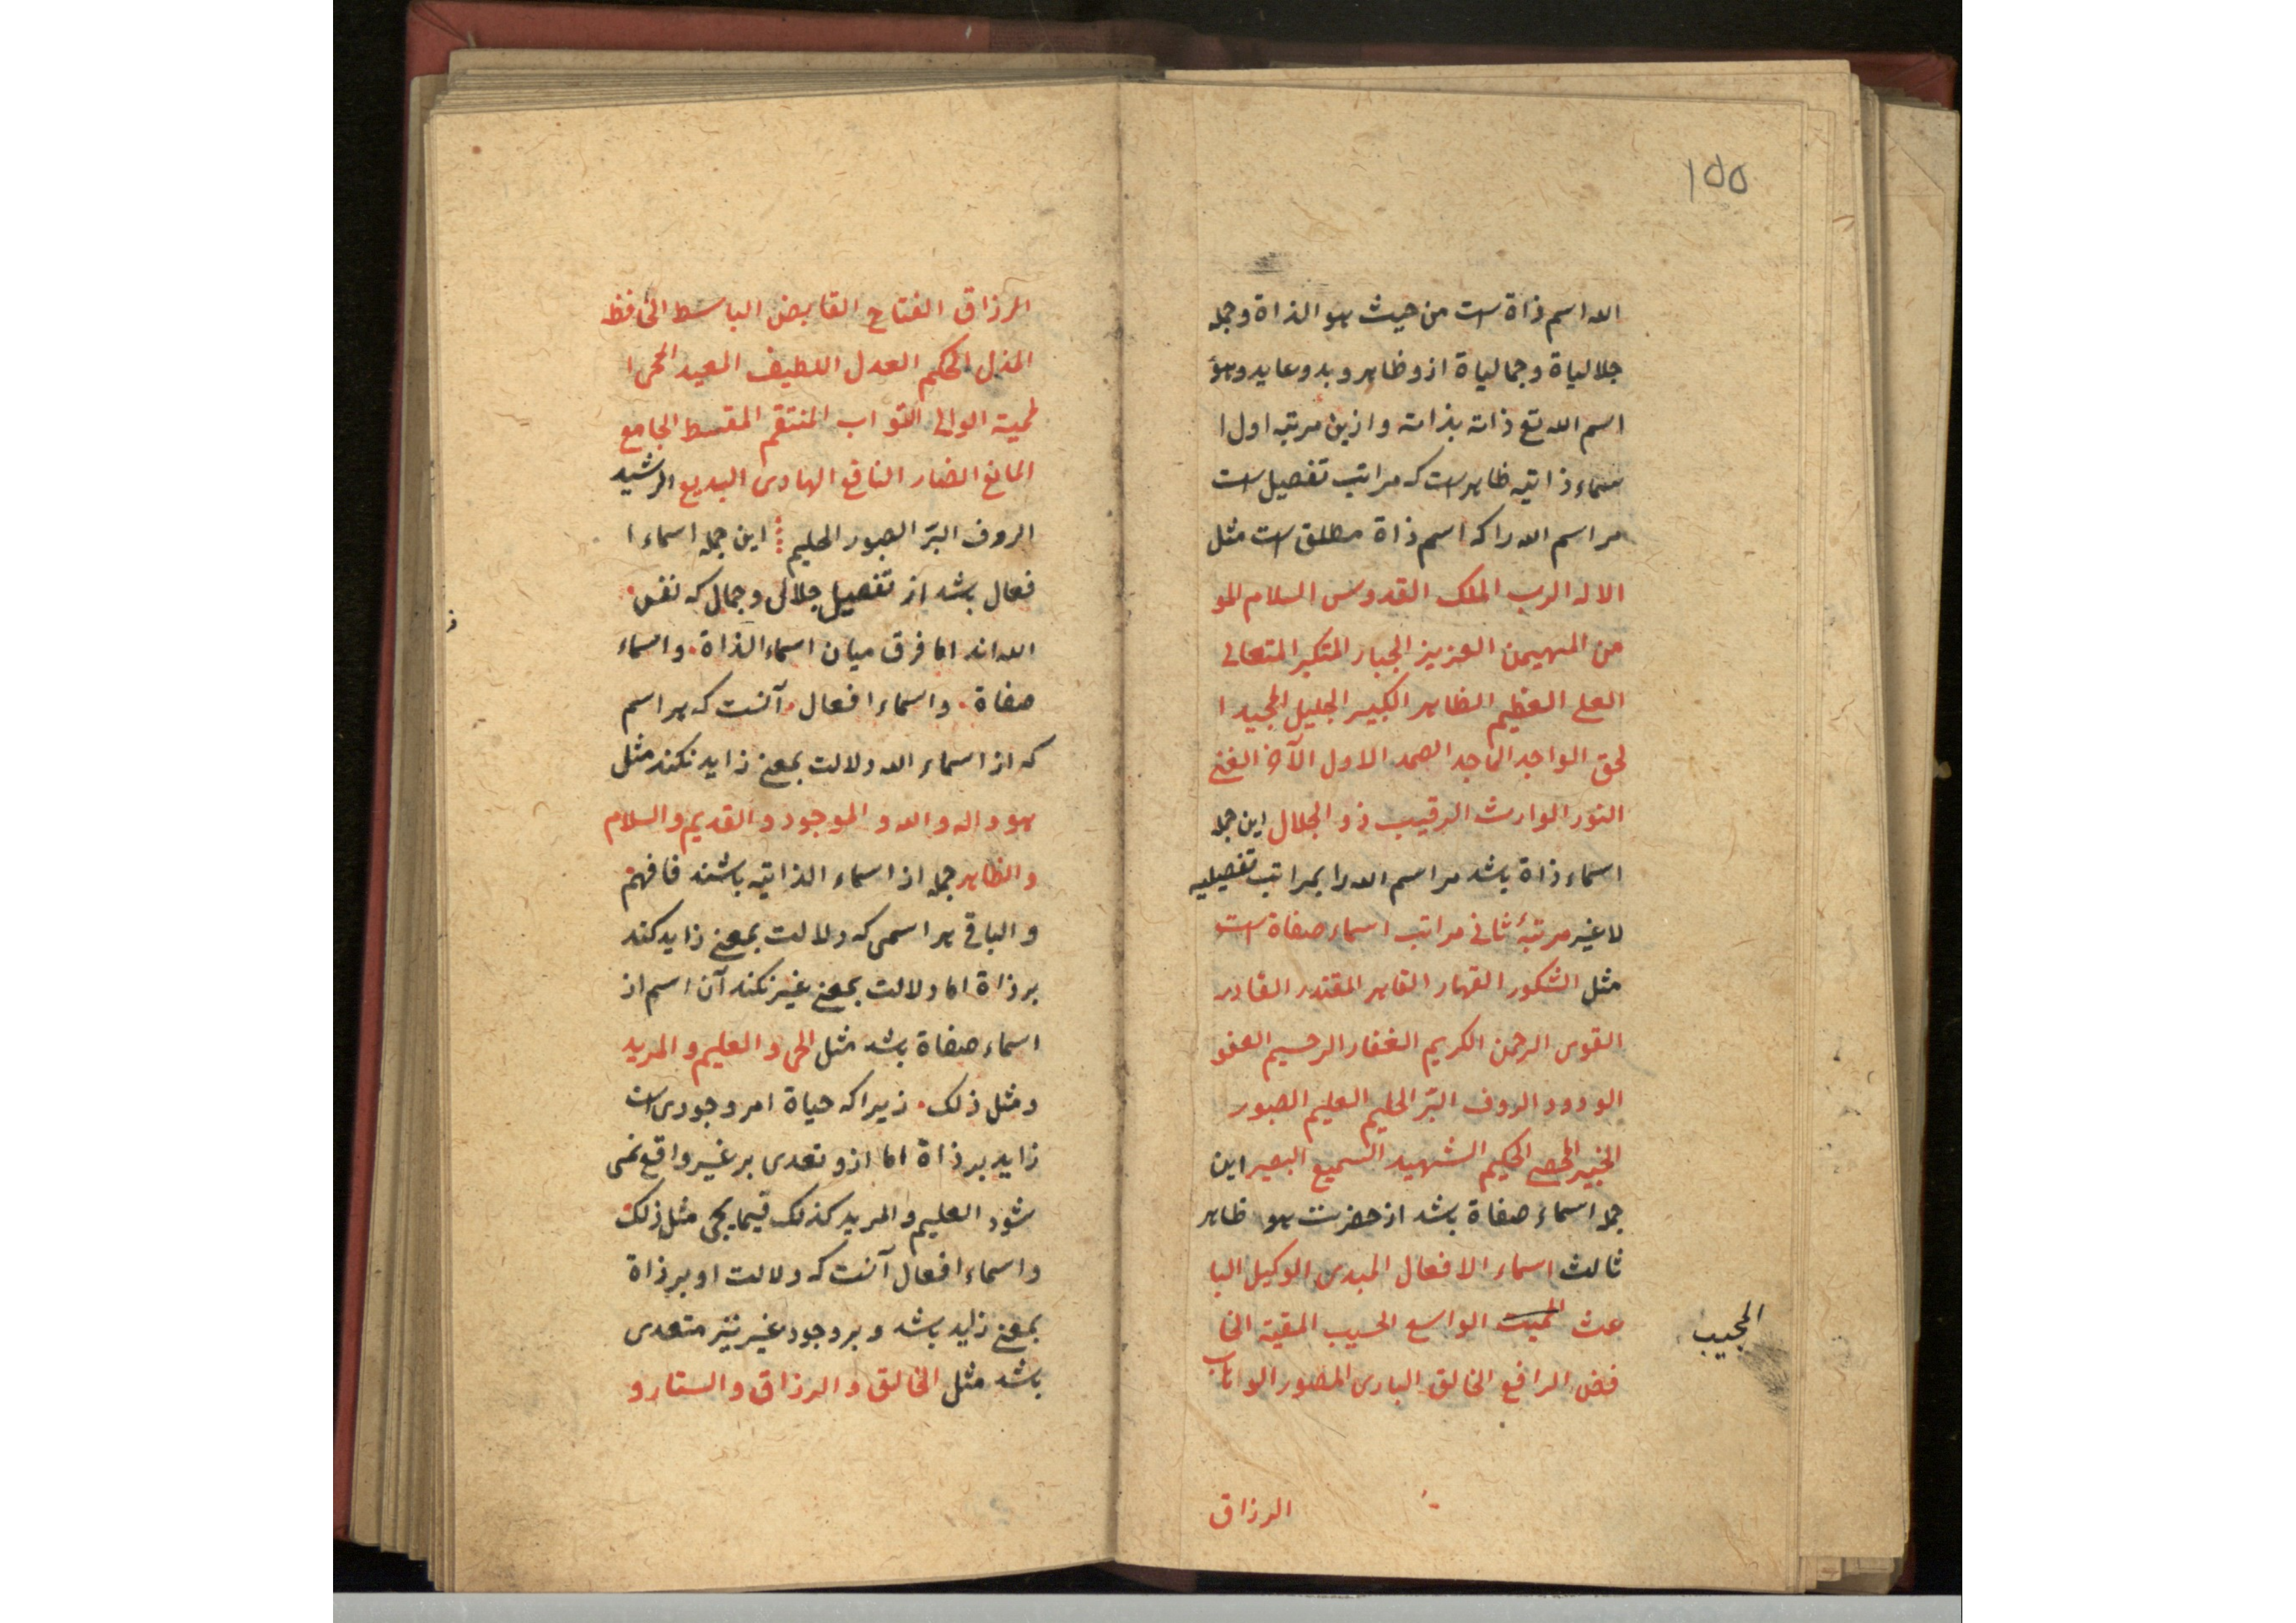 ۱۵۵
الله اسم ذاة است من حیث هو الذاة وجمله
جلالیاة وجمالیاة ازو ظاهر و بدو عاید وهو
اسم الله تع ذاته بذاته وازین مرتبه اول ا
سماء ذاتیه ظاهر است که مراتب تفصیل است
مر اسم الله را که اسم ذاة مطلق است مثل
الاله الرب الملک القدوس السلام المو
من المهیمن العزیز الجبار المتکبر المتعالی
العلی العظیم الظاهر الکبیر الجلیل المجید ا
لحق الواجد الماجد الصمد الاول الآخر الغنی
النور الوارث الرقیب ذو الجلال این جمله
اسماء ذاة باشد مر اسم الله را بمراتب تفصیلیه
لا غیر مرتبهٔ ثانی مراتب اسماء صفاة است
مثل الشکور القهار القاهر المقتدر القادر
القوی الرحمن الکریم الغفار الرحیم العفو
الودود الروف البرّ الحلیم العلیم الصبور
الخبیر المحصی الحکیم الشهید السمیع البصیر این
جمله اسماء صفاة باشد از حضرت هو ظاهر
ثالث اسماء الافعال المبدی الوکیل البا
عث الممیت الواسع الحسیب المقیة الخا
المجیب
فض الرافع الخالق الباری المصور الوهاب
الرزاق
الرزاق الفتاح القابض الباسط الخافظ
المذل الحکم العدل اللطیف المعید المحی ا
لمیة الوالی التواب المنتقم المقسط الجامع
المانع الضار النافع الهادی البدیع الرشید
الروف البرّ الصبور الحلیم این جمله اسماء ا
فعال باشد از تفصیل جلال وجمال که نفس
الله اند اما فرق میان اسماء الذاة واسماء
صفاة واسماء افعال آنست که هر اسم
که از اسماء الله دلالت بمعنی زاید نکند مثل
هو واله والله و الموجود و القدیم والسلام
والظاهر جمله از اسماء الذاتیه باشند فافهم
والباقی هر اسمی که دلالت بمعنی زاید کند
بر ذاة اما دلالت بمعنی غیر نکند آن اسم از
اسماء صفاة باشد مثل الحی و العلیم و المرید
ومثل ذلک زیرا که حیاة امر وجودی است
زاید بر ذاة اما ازو تعدی بر غیر واقع نمی
شود العلیم والمرید کذلک فیما یجی مثل ذلک
واسماء افعال آنست که دلالت او بر ذاة
بمعنی زاید باشد و بر وجود غیر نیز متعدی
باشد مثل الخالق والرزاق والستار و